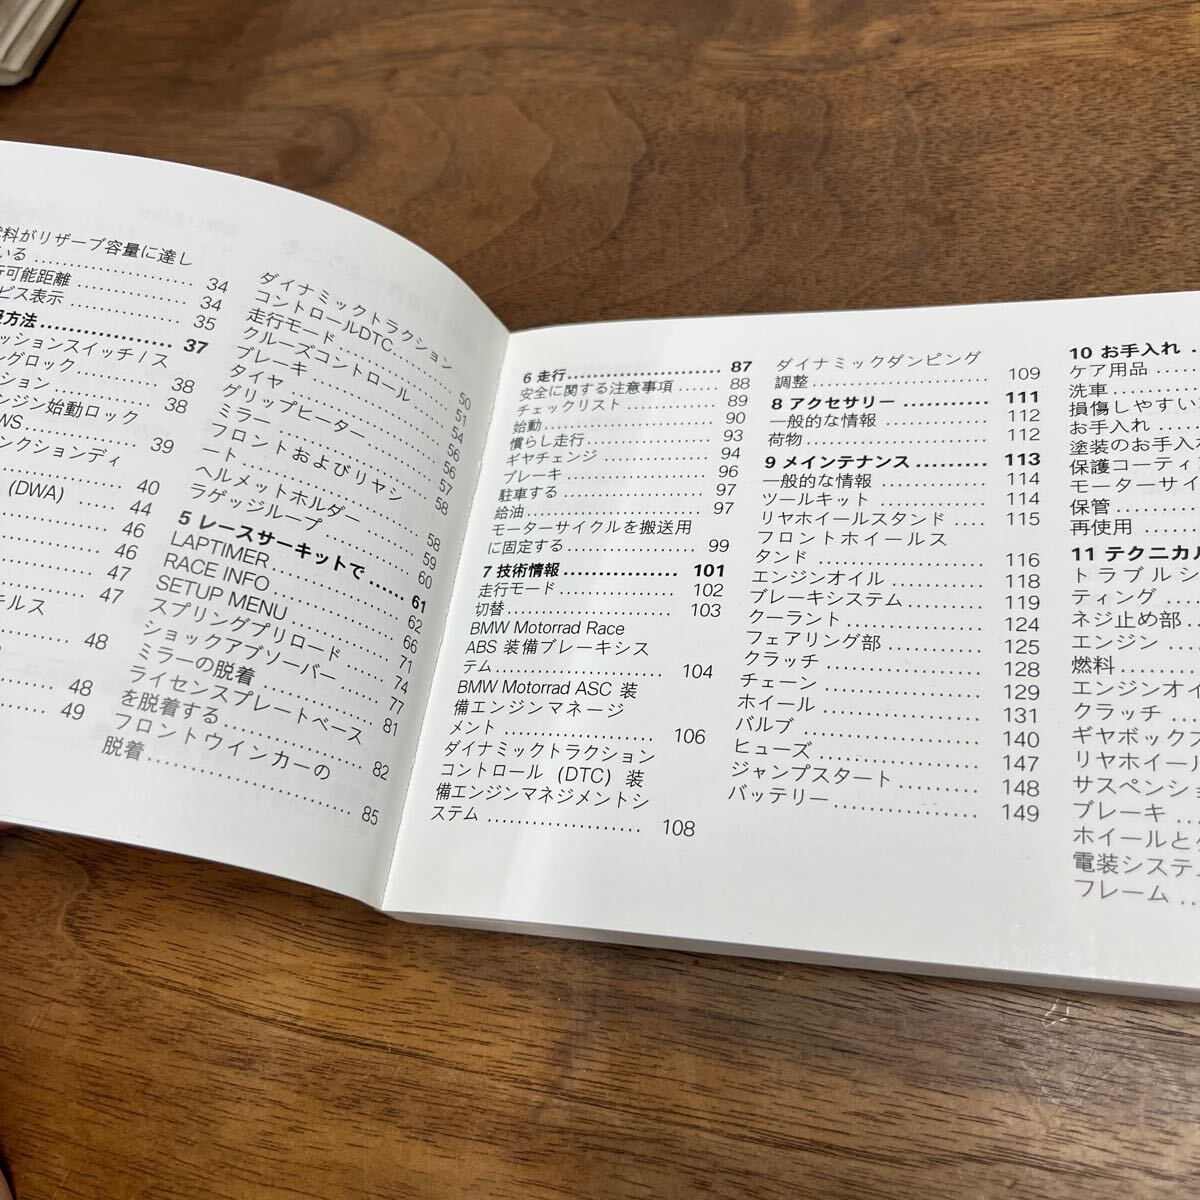 料がリザーブ容量に達し
いる .................. 34
可能距離 .................. 34
ビス表示 .................. 35
方法 .................. 37
ッションスイッチ / ス
ングロック .................. 38
ション .................. 38
ンジン始動ロック
WS .................. 39
ンクションディ
.................. 40
(DWA)
.................. 44
.................. 46
.................. 46
.................. 47
.................. 47
モルス
.................. 48
.................. 48
.................. 49
ダイナミックトラクション
コントロールDTC .................. 50
走行モード .................. 51
クルーズコントロール .................. 54
ブレーキ .................. 56
タイヤ .................. 56
グリップヒーター .................. 57
ミラー .................. 58
フロントおよびリヤシ
ート .................. 58
ヘルメットホルダー .................. 59
ラゲッジループ .................. 60
5 レースサーキットで ...... 61
LAPTIMER .................. 62
RACE INFO .................. 66
SETUP MENU .................. 71
スプリングプリロード .................. 74
ショックアブソーバー .................. 77
ミラーの脱着 .................. 81
ライセンスプレートベース
を脱着する .................. 82
フロントウインカーの
脱着 .................. 85
6 走行 .................. 87
安全に関する注意事項 ...... 88
チェックリスト .................. 89
始動 .................. 90
慣らし走行 .................. 93
ギヤチェンジ .................. 94
ブレーキ .................. 96
駐車する .................. 97
給油 .................. 97
モーターサイクルを搬送用
に固定する .................. 99
7 技術情報 .................. 101
走行モード .................. 102
切替 .................. 103
BMW Motorrad Race
ABS 装備ブレーキシス
テム .................. 104
BMW Motorrad ASC 装
備エンジンマネージ
メント .................. 106
ダイナミックトラクション
コントロール (DTC) 装
備エンジンマネジメントシ
ステム .................. 108
ダイナミックダンピング
調整 .................. 109
8 アクセサリー ........... 111
一般的な情報 ........... 112
荷物 .................. 112
9 メインテナンス ......... 113
一般的な情報 ........... 114
ツールキット ........... 114
リヤホイールスタンド .... 115
フロントホイールス
タンド .................. 116
エンジンオイル ........... 118
ブレーキシステム ........... 119
クーラント .................. 124
フェアリング部 ........... 125
クラッチ .................. 128
チェーン .................. 129
ホイール .................. 131
バルブ .................. 140
ヒューズ .................. 147
ジャンプスタート ........... 148
バッテリー .................. 149
10 お手入れ ..
ケア用品 ......
洗車 ..........
損傷しやすい
お手入れ ......
塗装のお手入
保護コーティ
モーターサイ
保管 ..........
再使用 ........
11 テクニカル
トラブルシ
ティング ......
ネジ止め部 ...
エンジン ...
燃料 ........
エンジンオイ
クラッチ ...
ギヤボックス
リヤホイール
サスペンショ
ブレーキ ...
ホイールと
電装システ
フレーム ..